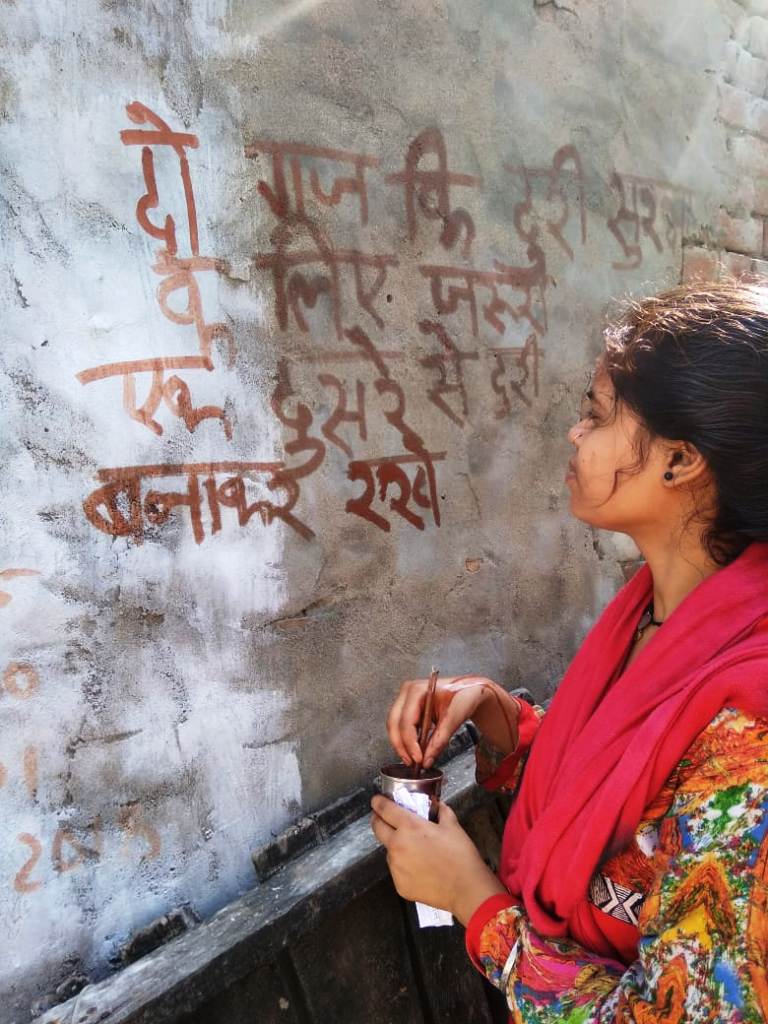 दो गज कि दुरी सुरक्षा
के लिए जरुरी
एक दुसरे से दुरी
बनाकर रखे